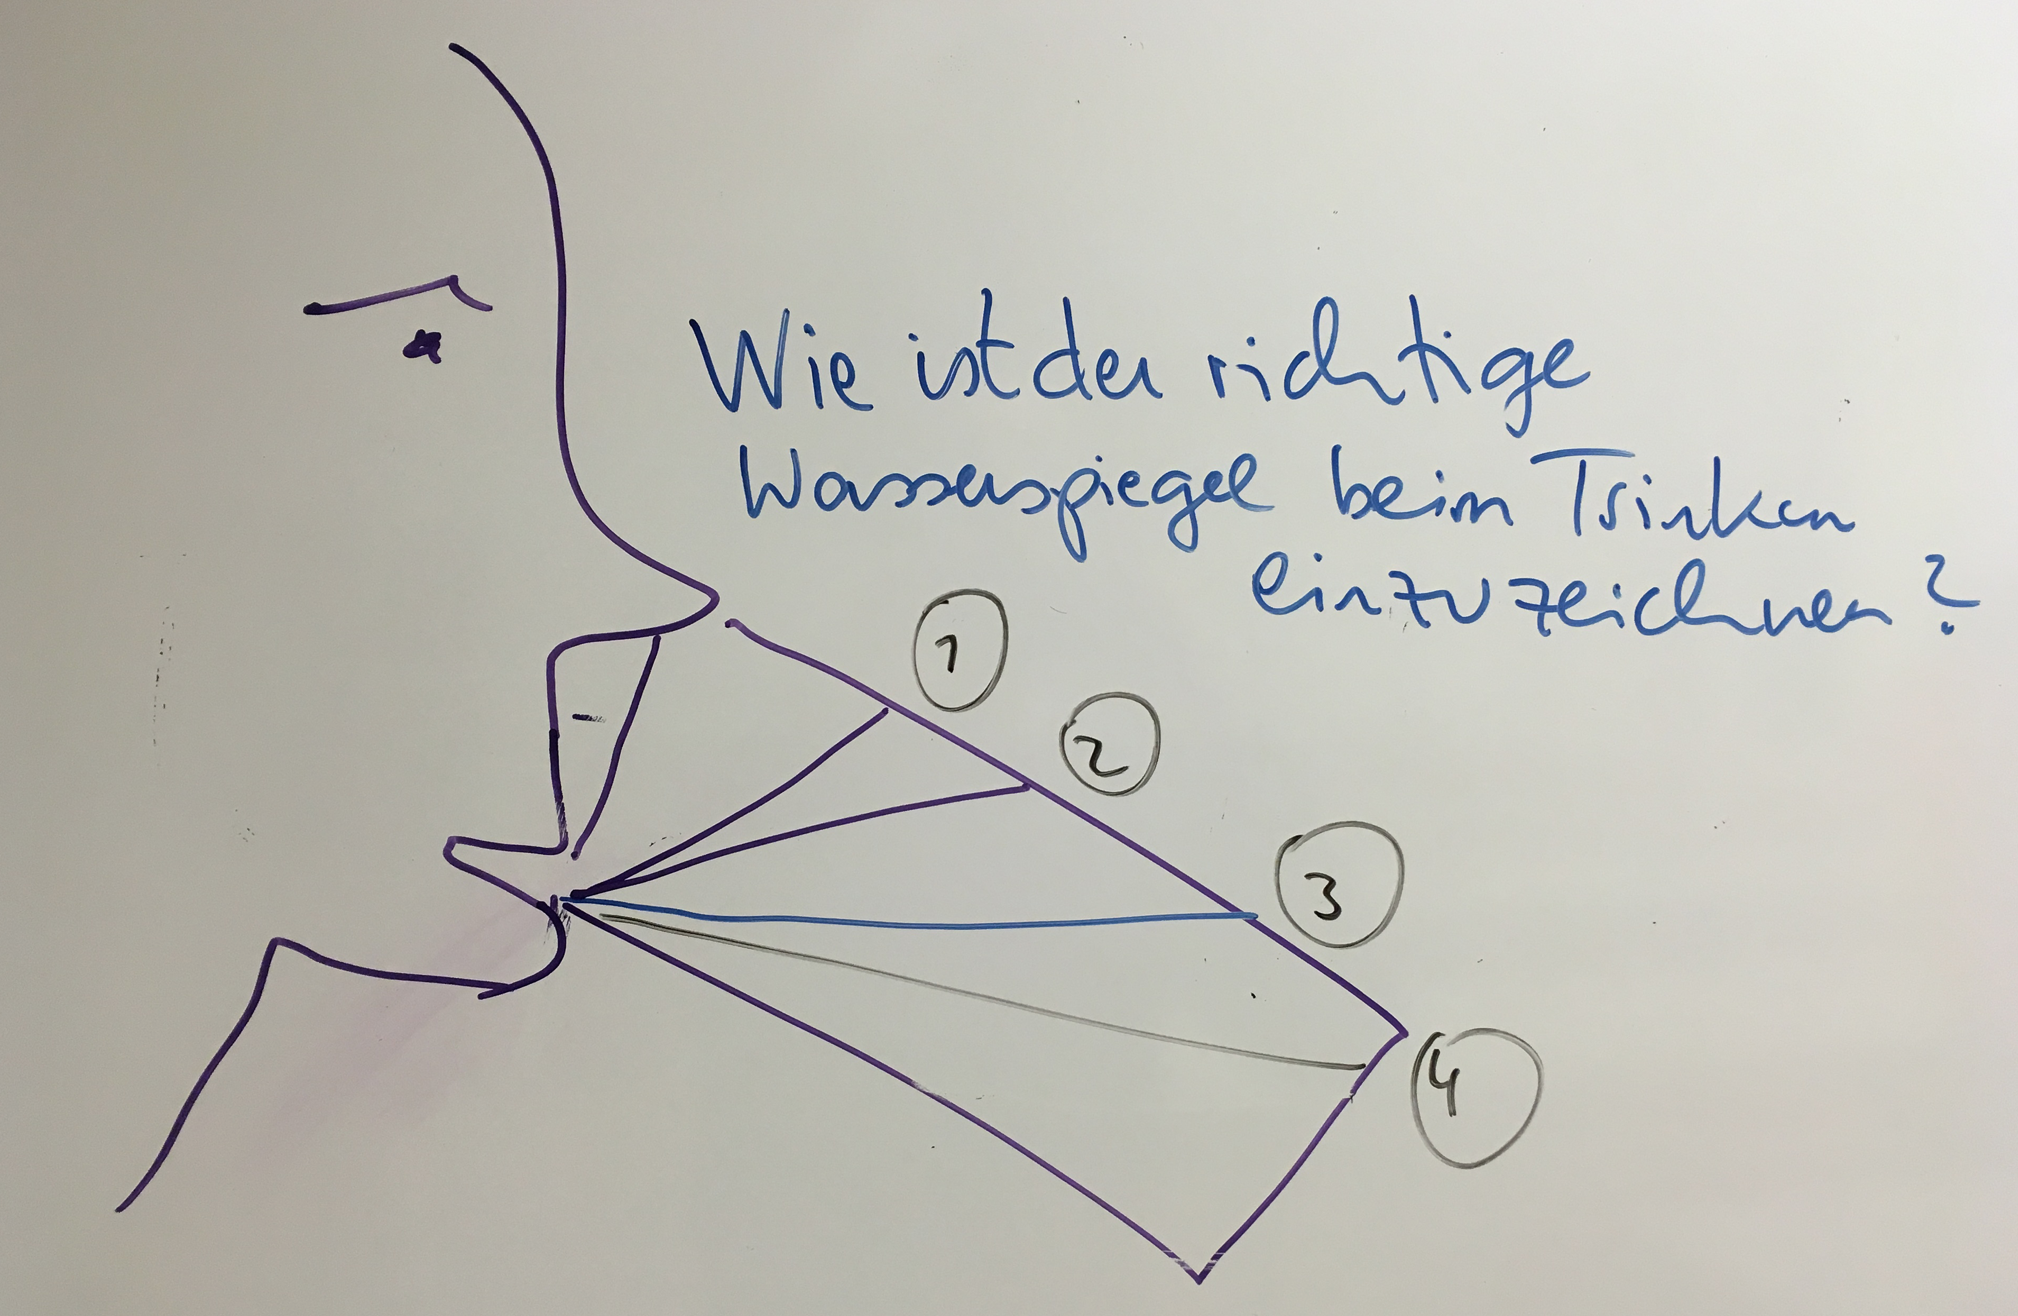 Wie ist der richtige
Wasserspiegel beim Trinken
einzuzeichnen?
1
2
3
4